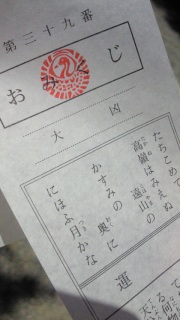 第三十九番
おみくじ
大凶
たちこめて
高嶺はみえぬ
遠山の
かすみの奥に
にほふ月かな
運